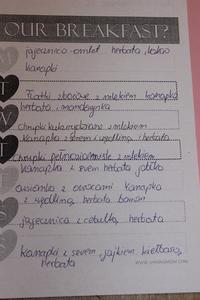 OUR BREAKFAST?
jajecznica-omlet herbata, kakao
kanapki
T
Płatki zbożowe z mlekiem kanapka
herbata i mandarynka
W
chrupki kukurydziane z mlekiem
kanapka z serem i wędliną, herbata
T
chrupki pełnoziarniste z mlekiem
kanapka z serem herbata jabłko
owsianka z owocami kanapka
z wędliną, herbata banan
jajecznica z cebulką, herbata
kanapki z serem, jajkiem, kiełbasą,
herbata